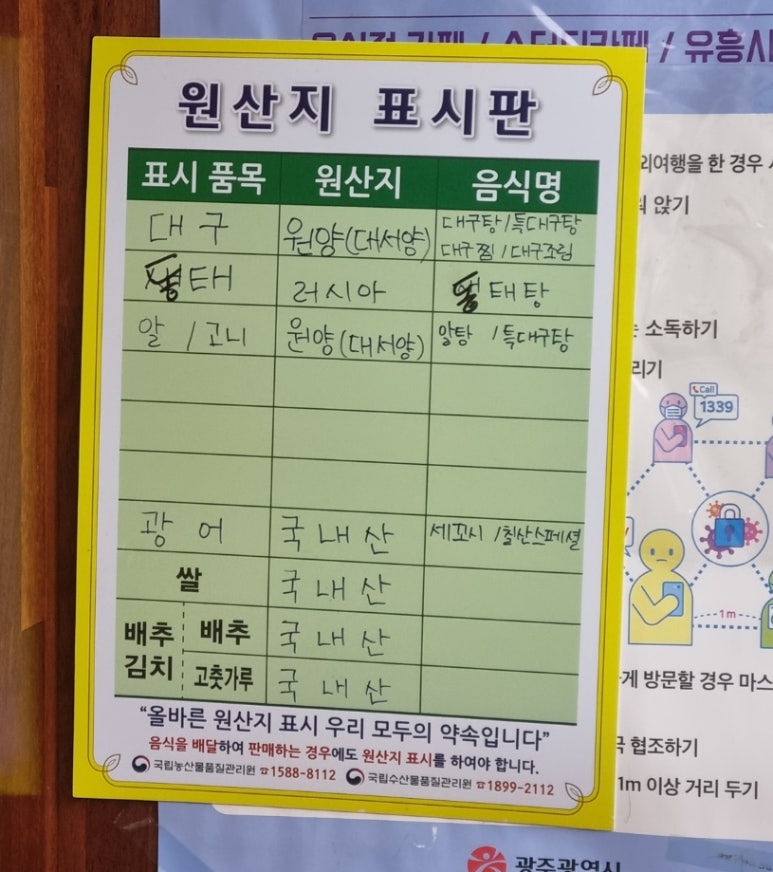 원산지 표시판
표시 품목 원산지 음식명
대구 원양(대서양) 대구탕/특대구탕
대구찜/대구조림
태 러시아 태탕
알/고니 원양(대서양) 알탕/특대구탕
광어 국내산 세꼬시/칠산스페셜
쌀 국내산
배추김치 배추 국내산
고춧가루 국내산
“올바른 원산지 표시 우리 모두의 약속입니다”
음식을 배달하여 판매하는 경우에도 원산지 표시를 하여야 합니다.
국립농산물품질관리원 ☎1588-8112 국립수산물품질관리원 ☎1899-2112
음식점 카페 / 스터디카페 / 유흥시
외여행을 한 경우
앉기
소독하기
리기
Call
1339
1m
게 방문할 경우 마스
협조하기
1m 이상 거리 두기
광주광역시